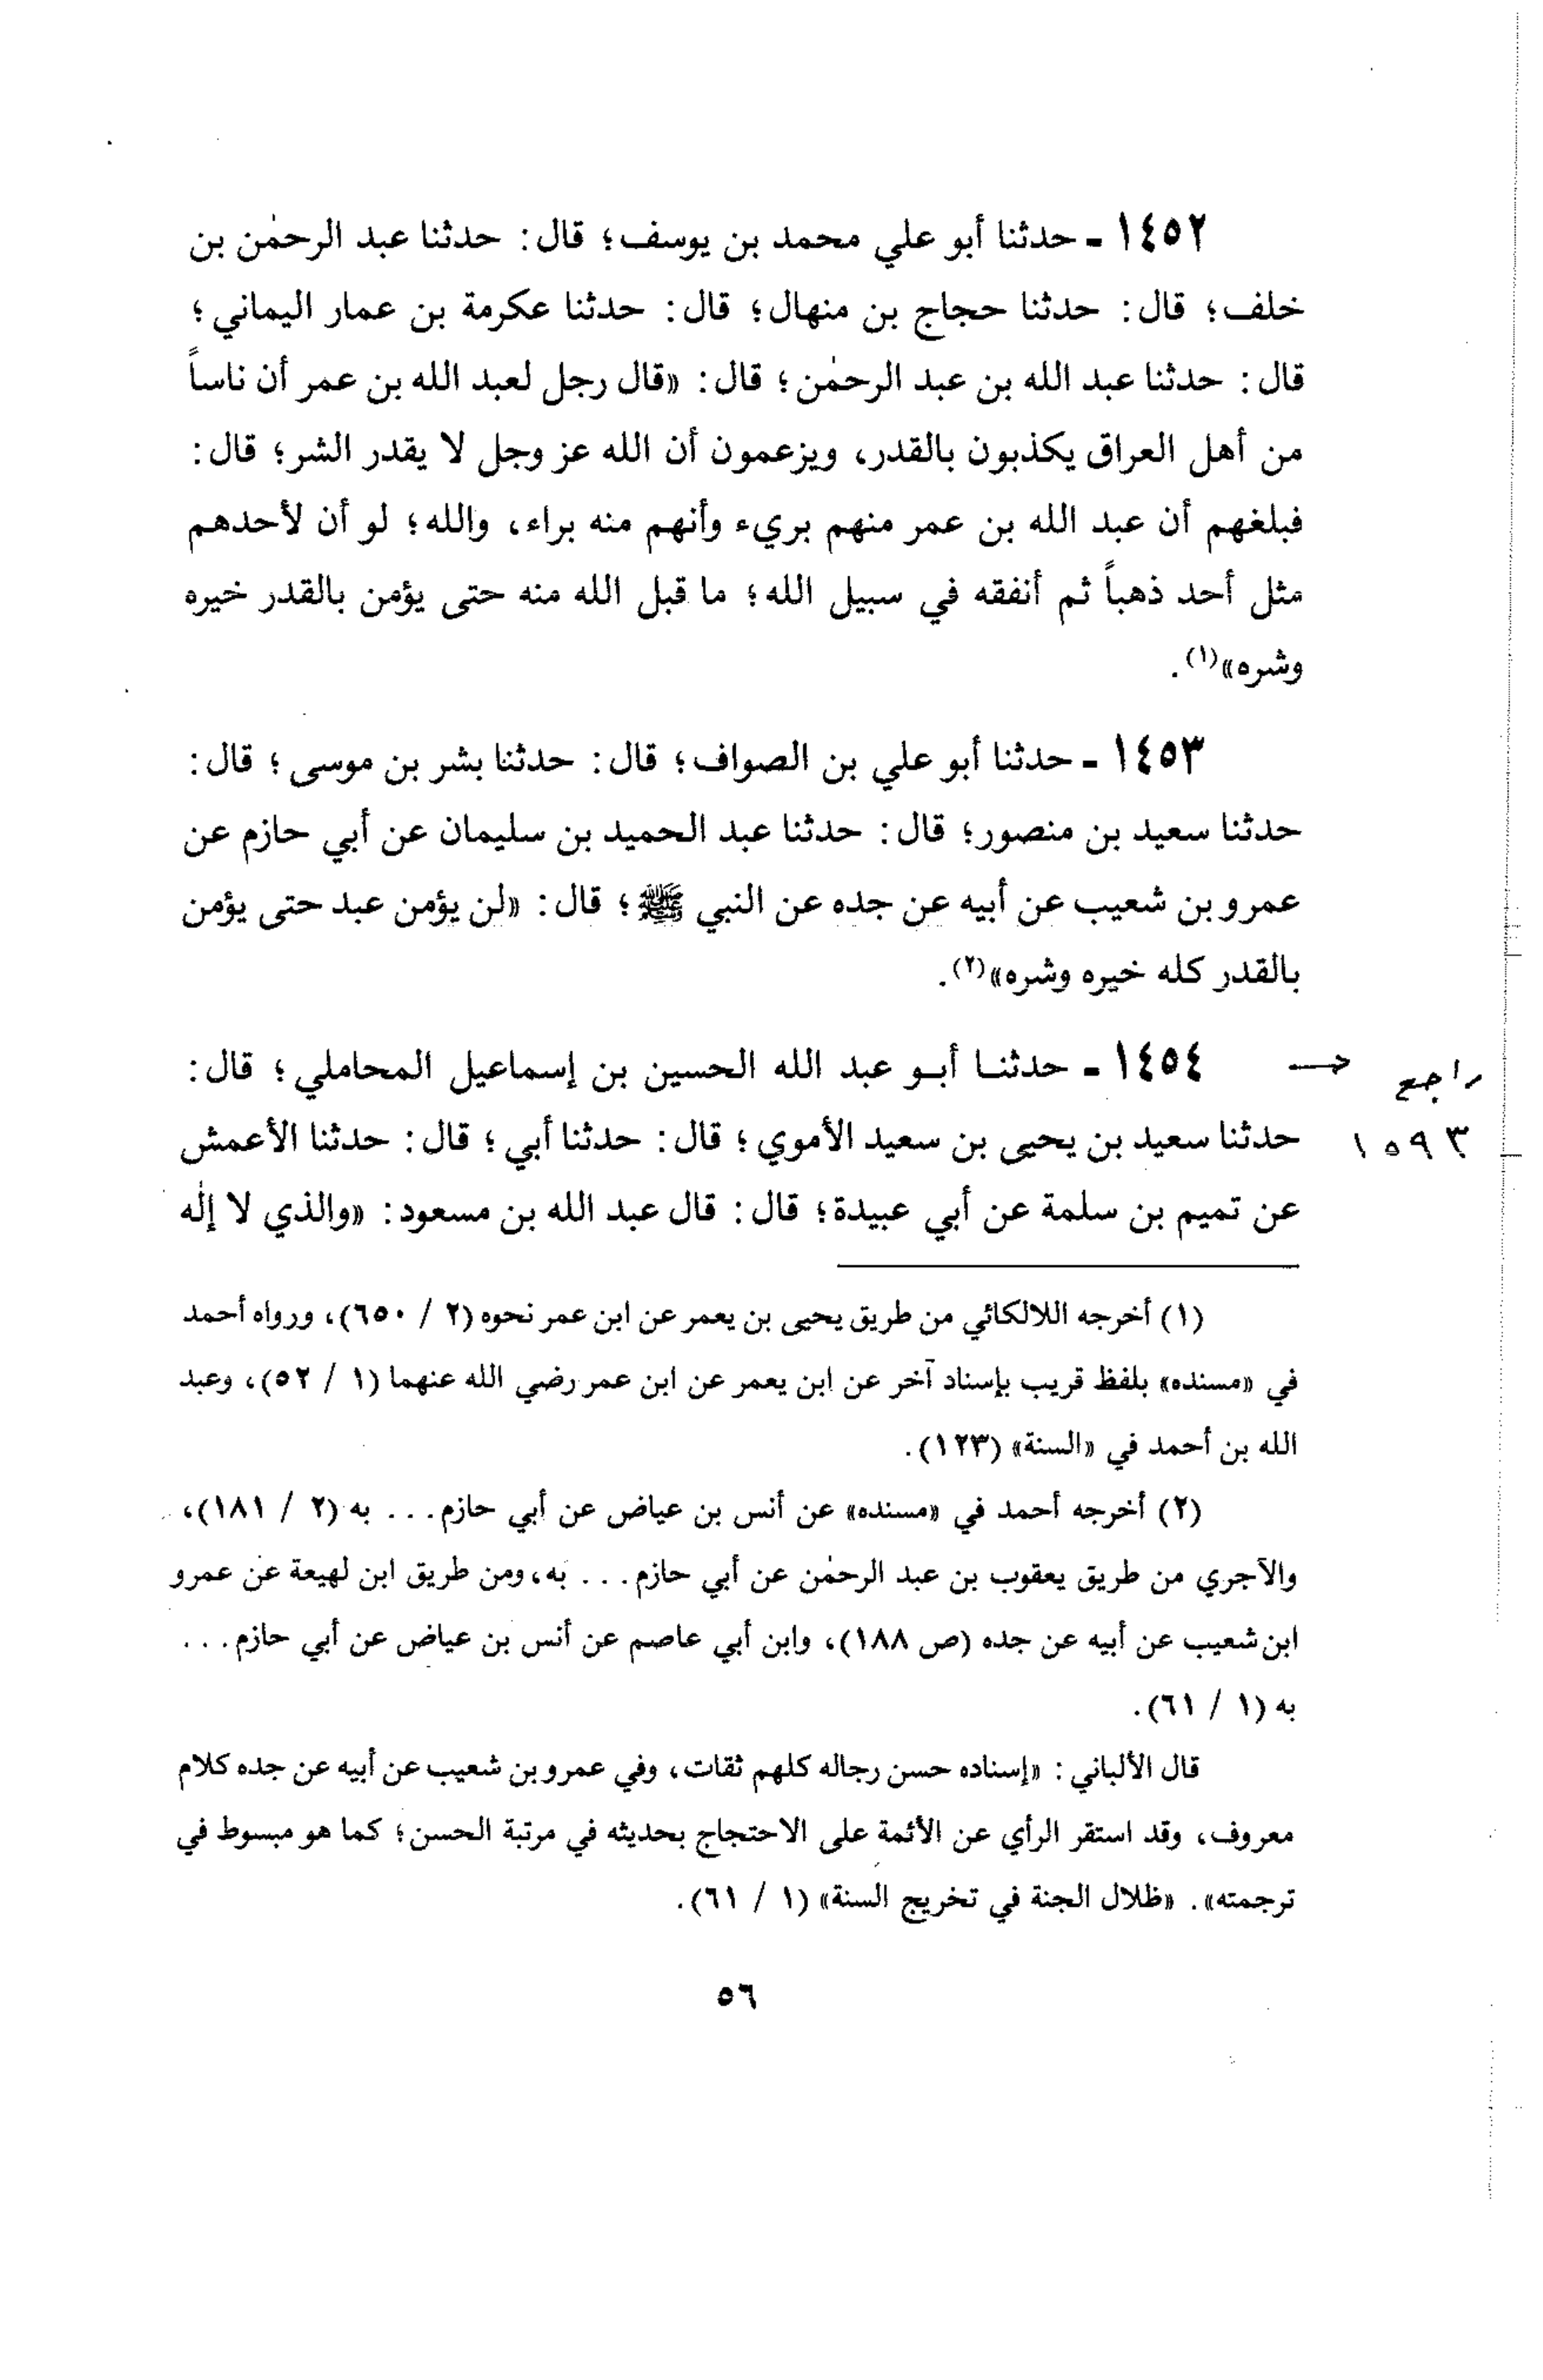 ١٤٥٢ - حدثنا أبو علي محمد بن يوسف؛ قال: حدثنا عبد الرحمٰن بن
خلف؛ قال: حدثنا حجاج بن منهال؛ قال: حدثنا عكرمة بن عمار اليماني؛
قال: حدثنا عبد الله بن عبد الرحمٰن؛ قال: «قال رجل لعبد الله بن عمر أن ناساً
من أهل العراق يكذبون بالقدر، ويزعمون أن الله عز وجل لا يقدر الشر؛ قال:
فبلغهم أن عبد الله بن عمر منهم بريء وأنهم منه براء، والله؛ لو أن لأحدهم
مثل أحد ذهباً ثم أنفقه في سبيل الله؛ ما قبل الله منه حتى يؤمن بالقدر خيره
وشره»(١).
١٤٥٣ - حدثنا أبو علي بن الصواف؛ قال: حدثنا بشر بن موسى؛ قال:
حدثنا سعيد بن منصور؛ قال: حدثنا عبد الحميد بن سليمان عن أبي حازم عن
عمرو بن شعيب عن أبيه عن جده عن النبي ﷺ؛ قال: «لن يؤمن عبد حتى يؤمن
بالقدر كله خيره وشره»(٢).
راجع ١٤٥٤ - حدثنا أبو عبد الله الحسين بن إسماعيل المحاملي؛ قال:
١٥٩٣ حدثنا سعيد بن يحيى بن سعيد الأموي؛ قال: حدثنا أبي؛ قال: حدثنا الأعمش
عن تميم بن سلمة عن أبي عبيدة؛ قال: قال عبد الله بن مسعود: «والذي لا إلٰه
(١) أخرجه اللالكائي من طريق يحيى بن يعمر عن ابن عمر نحوه (٢ / ٦٥٠)، ورواه أحمد
في «مسنده» بلفظ قريب بإسناد آخر عن ابن يعمر عن ابن عمر رضي الله عنهما (١ / ٥٢)، وعبد
الله بن أحمد في «السنة» (١٢٣).
(٢) أخرجه أحمد في «مسنده» عن أنس بن عياض عن أبي حازم... به (٢ / ١٨١)،
والآجري من طريق يعقوب بن عبد الرحمٰن عن أبي حازم... به، ومن طريق ابن لهيعة عن عمرو
ابن شعيب عن أبيه عن جده (ص ١٨٨)، وابن أبي عاصم عن أنس بن عياض عن أبي حازم...
به (١ / ٦١).
قال الألباني: «إسناده حسن رجاله كلهم ثقات، وفي عمرو بن شعيب عن أبيه عن جده كلام
معروف، وقد استقر الرأي عن الأئمة على الاحتجاج بحديثه في مرتبة الحسن؛ كما هو مبسوط في
ترجمته». «ظلال الجنة في تخريج السنة» (١ / ٦١).
٥٦